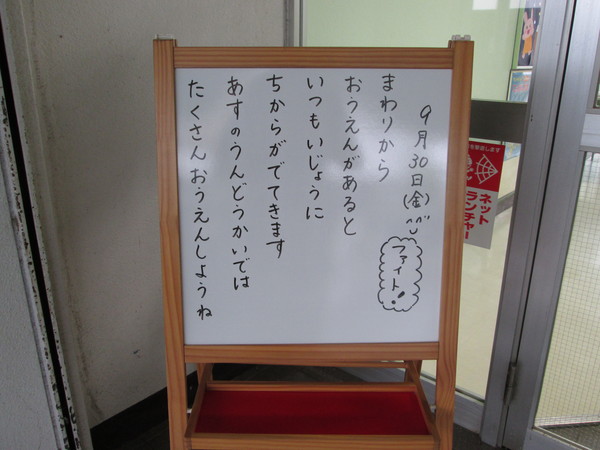 9月30日(金)
ファイト!
まわりから
おうえんがあると
いつもいじょうに
ちからがでてきます
あすのうんどうかいでは
たくさんおうえんしようね
ネット
ランチャー